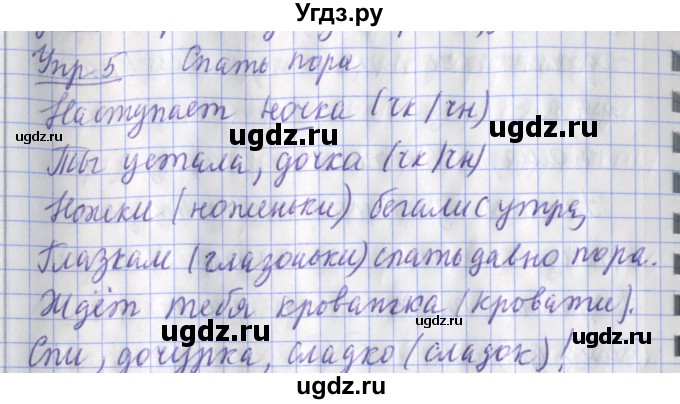 Угдз.ру
Упр 5 Спать пора
Наступает ночка (чк/чн)
ugdz.ru ugdz.ru ugdz.ru
Ты устала, дочка (чк/чн)
ugdz.ru ugdz.ru
Ножки (ноженьки) бегали с утра,
ugdz.ru ugdz.ru
Глазкам (глазоньки) спать давно пора.
ugdz.ru
Ждёт тебя кроватка (кровати).
ugdz.ru ugdz.ru ugdz.ru
Спи, дочурка, сладко (сладок)!
ugdz.ru